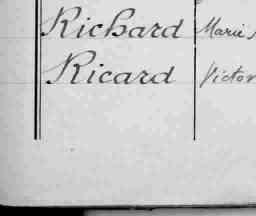 Richard Marie
Ricard Victor